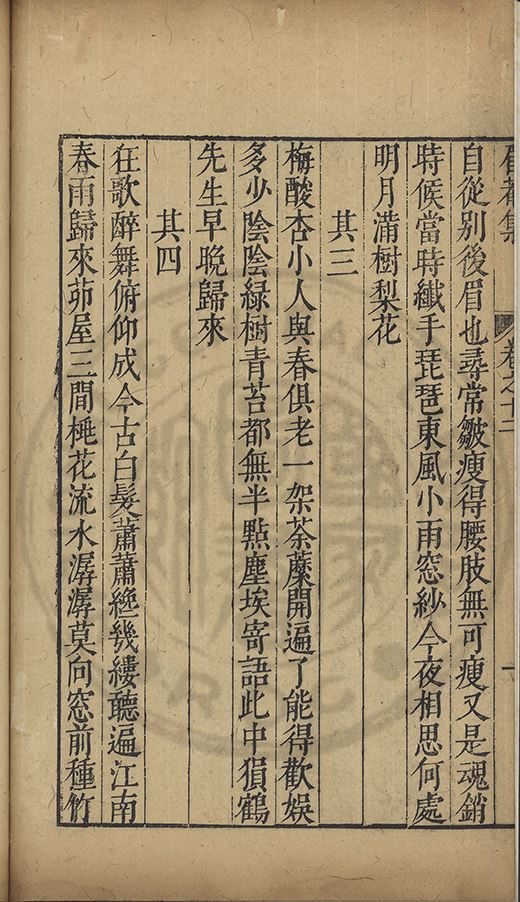 卷之十二
自從別後眉也尋常皺瘦得腰肢無可瘦又是魂銷
時候當時纖手琵琶東風小雨窓紗今夜相思何處
明月滿樹梨花
其三
梅酸杏小人與春俱老一架荼蘼開遍了能得歡娛
多少陰陰綠樹青苔都無半點塵埃寄語此中猿鶴
先生早晚歸來
其四
狂歌醉舞俯仰成今古白髮蕭蕭絶幾縷聽遍江南
春雨歸來茆屋三間桃花流水潺潺莫向窓前種竹